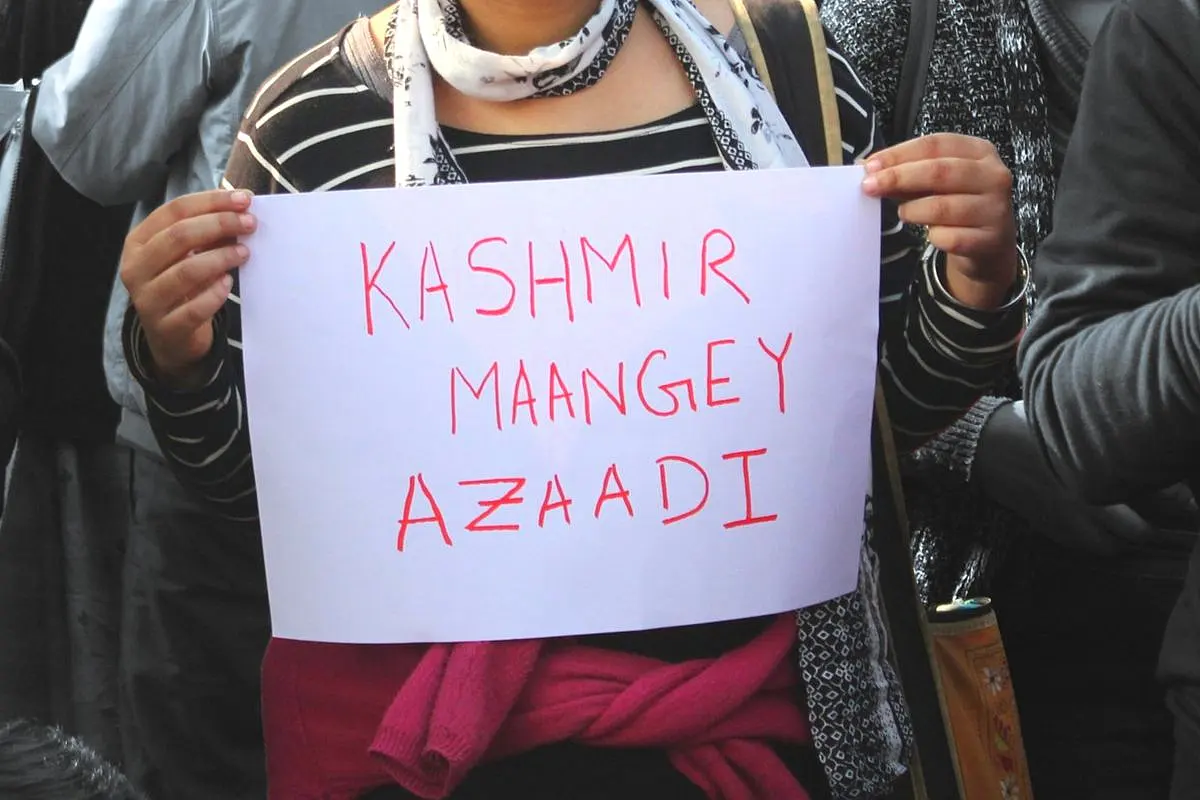 KASHMIR
MAANGEY
AZAADI